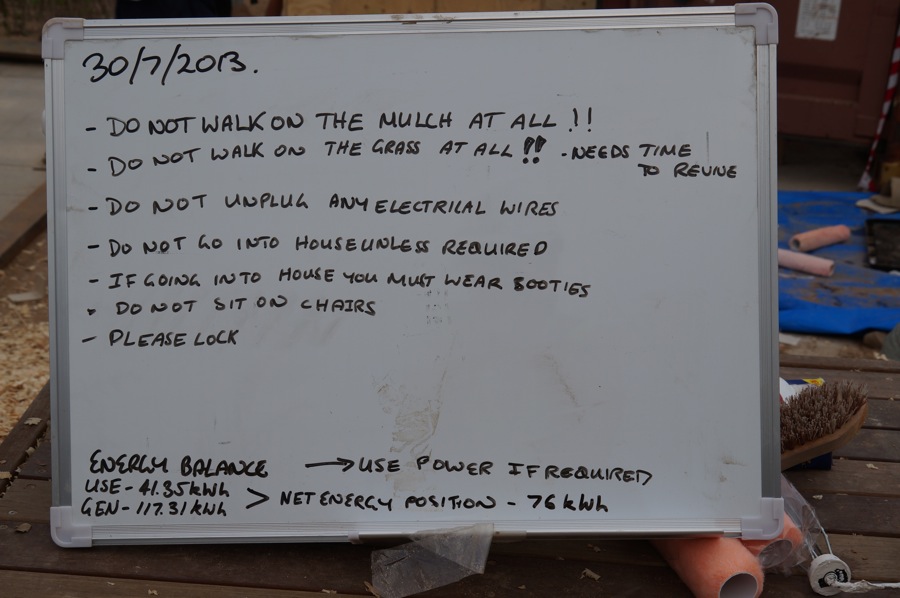 30/7/2013.
- DO NOT WALK ON THE MULCH AT ALL !!
- DO NOT WALK ON THE GRASS AT ALL !! - NEEDS TIME
TO REVIVE
- DO NOT UNPLUG ANY ELECTRICAL WIRES
- DO NOT GO INTO HOUSE UNLESS REQUIRED
- IF GOING INTO HOUSE YOU MUST WEAR BOOTIES
- DO NOT SIT ON CHAIRS
- PLEASE LOCK
ENERGY BALANCE → USE POWER IF REQUIRED
USE - 41.35 kWh
GEN - 117.31 kWh > NET ENERGY POSITION - 76 kWh